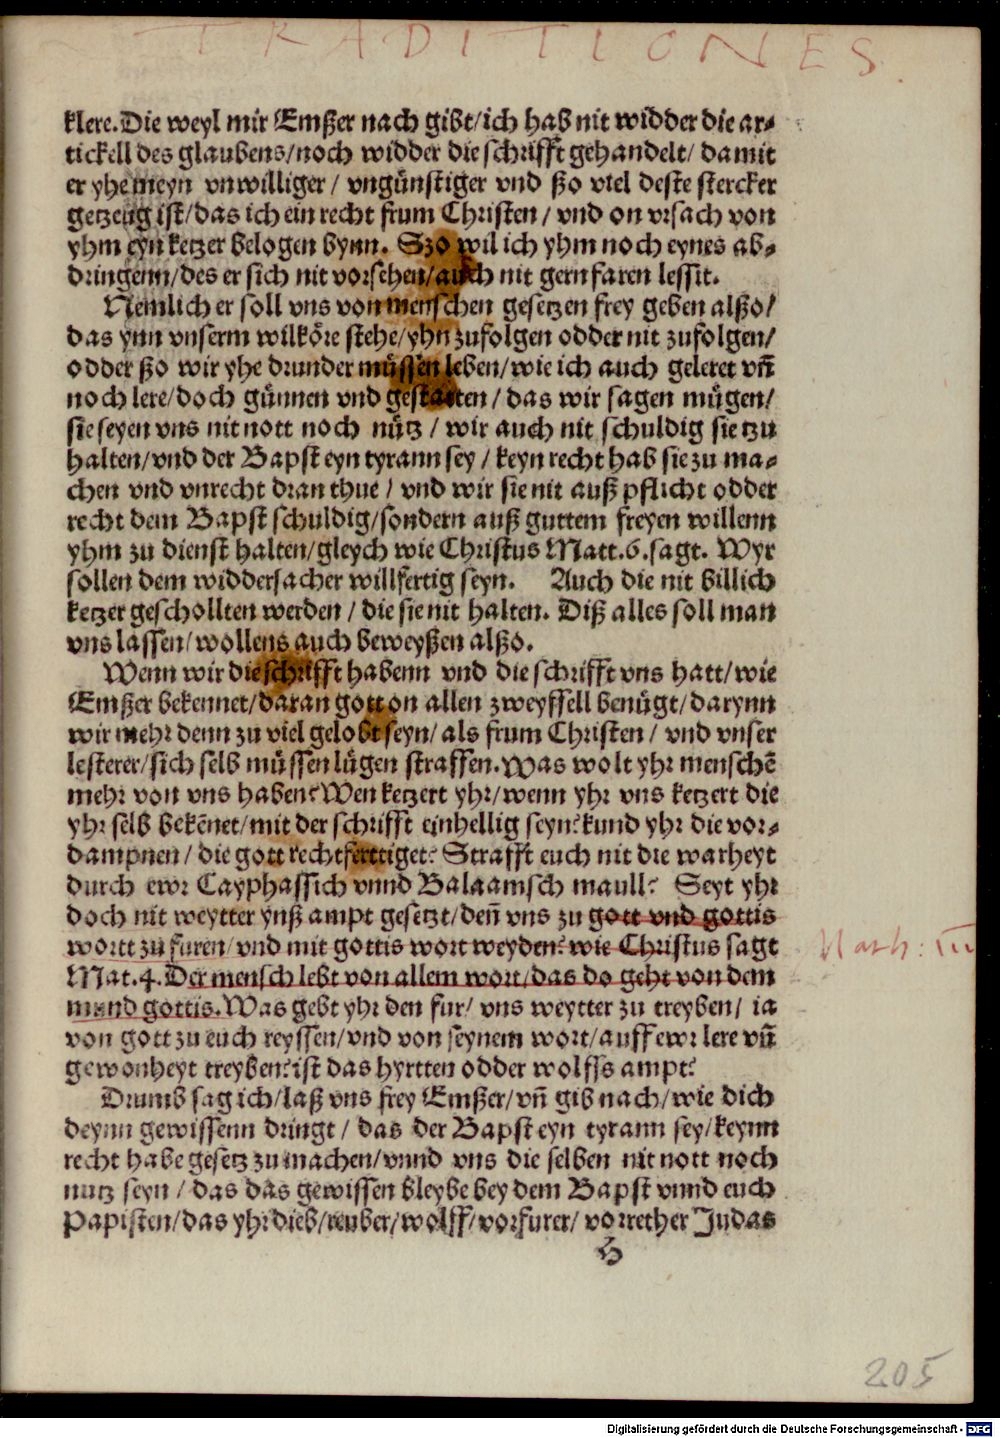 TRADITIONES.
klere. Die weyl mir Emßer nach gibt/ich hab nit widder die ar⸗
tickell des glaubens/noch widder die schrifft gehandelt/ damit
er yhe meyn vnwilliger / vngünstiger vnd ßo viel deste stercker
getzeug ist/das ich ein recht frum Christen / vnd on vrsach von
yhm eyn ketzer belogen bynn. Szo wil ich yhm noch eynes ab⸗
dringenn/des er sich nit vorsehen/auch nit gern faren lessit.
Nemlich er soll vns von menschen gesetzen frey geben alßo/
das ynn vnserm wilköre stehe/yhn zufolgen odder nit zufolgen/
odder ßo wir yhe drunder müssen leben/wie ich auch geleret vñ
noch lere/doch günnen vnd gestatten / das wir sagen mügen/
sie seyen vns nit nott noch nütz / wir auch nit schuldig sie tzu
halten/vnd der Bapst eyn tyrann sey / keyn recht hab sie zu ma⸗
chen vnd vnrecht dran thue / vnd wir sie nit auß pflicht odder
recht dem Bapst schuldig/sondern auß guttem freyen willenn
yhm zu dienst halten/gleych wie Christus Matt.6.sagt. Wyr
sollen dem widdersacher willfertig seyn. Auch die nit billich
ketzer geschollten werden / die sie nit halten. Diß alles soll man
vns lassen/wollens auch beweyßen alßo.
Wenn wir die schrifft habenn vnd die schrifft vns hatt/wie
Emßer bekennet/daran gott on allen zweyffell benügt/darynn
wir mehr denn zu viel gelobt seyn/ als frum Christen / vnd vnser
lesterer/sich selb müssen lügen straffen. Was wolt yhr menschē
mehr von vns haben? Wen ketzert yhr/wenn yhr vns ketzert die
yhr selb bekēnet/mit der schrifft einhellig seyn? kund yhr die vor⸗
dampnen / die gott rechtferttiget? Strafft euch nit die warheyt
durch ewr Cayphassich vnnd Balaamsch maull? Seyt yhr
doch nit weytter ynß ampt gesetzt/deñ vns zu gott vnd gottis
wortt zu furen/ vnd mit gottis wort weyden? wie Christus sagt
Math: III
Mat.4. Der mensch lebt von allem wort/das do geht von dem
mund gottis. Was gebt yhr den fur/ vns weytter zu treyben/ ia
von gott zu euch reyssen/vnd von seynem wort/auff ewr lere vñ
gewonheyt treyben? ist das hyrtten odder wolffs ampt?
Drumb sag ich/laß vns frey Emßer/vñ gib nach/wie dich
deynn gewissenn dringt / das der Bapst eyn tyrann sey/keynn
recht habe gesetz zu machen/vnnd vns die selben nit nott noch
nutz seyn / das das gewissen bleybe bey dem Bapst vnnd euch
Papisten/das yhr dieb/reuber/wolff/vorfurer/ vorrether Judas
H
205
Digitalisierung gefördert durch die Deutsche Forschungsgemeinschaft - DFG